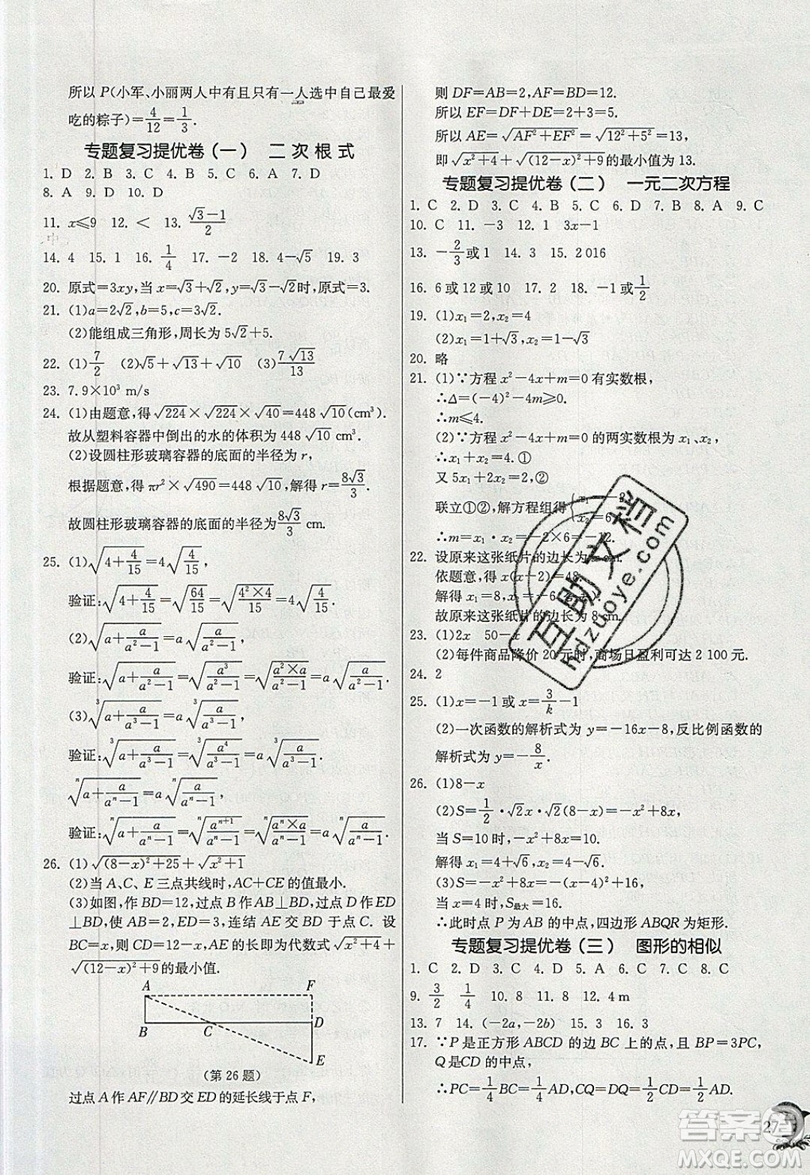 所以 P(小军、小丽两人中有且只有一人选中自己最爱
吃的粽子)=4/12=1/3.
专题复习提优卷(一) 二次根式
1. D 2. B 3. C 4. D 5. C 6. A 7. D
8. A 9. D 10. D
11. x≤9 12. < 13. (√3-1)/2
14. 4 15. 1 16. 1/4 17. -2 18. 4-√5 19. 4
20. 原式=3xy,当 x=√3-√2,y=√3+√2时,原式=3.
21. (1)a=2√2,b=5,c=3√2.
(2)能组成三角形,周长为 5√2+5.
22. (1)7/2 (2)√5+√10+√13 (3)7√13/13
23. 7.9×10³ m/s
24. (1)由题意,得√224×√224×√40=448√10(cm³).
故从塑料容器中倒出的水的体积为 448√10 cm³.
(2)设圆柱形玻璃容器的底面的半径为 r,
根据题意,得 πr²×√490=448√10,解得 r=8√3/3.
故圆柱形玻璃容器的底面的半径为8√3/3 cm.
25. (1)√(4+4/15)=4√(4/15)
验证:√(4+4/15)=√(64/15)=√((4²×4)/15)=4√(4/15)
(2)√(a+a/(a²-1))=a√(a/(a²-1))
验证:√(a+a/(a²-1))=√(a³/(a²-1))=√((a²×a)/(a²-1))=a√(a/(a²-1))
(3)³√(a+a/(a³-1))=a³√(a/(a³-1))
验证:³√(a+a/(a³-1))=³√(a⁴/(a³-1))=³√((a³×a)/(a³-1))=a³√(a/(a³-1))
ⁿ√(a+a/(aⁿ-1))=aⁿ√(a/(aⁿ-1))
验证:ⁿ√(a+a/(aⁿ-1))=ⁿ√(aⁿ⁺¹/(aⁿ-1))=ⁿ√((aⁿ×a)/(aⁿ-1))=aⁿ√(a/(aⁿ-1))
26. (1)√((8-x)²+25)+√(x²+1)
(2)当 A、C、E 三点共线时,值最小.
(3)如图,作 BD=12,过点 B 作 AB⊥BD,过点 D 作 ED
⊥BD,使 AB=2,ED=3,连结 AE 交 BD 于点 C. 设
BC=x,则 CD=12-x,AE 的长即为代数式√(x²+4)+
√((12-x)²+9)的最小值.
A F
B C D
E
(第 26 题)
过点 A 作 AF∥BD 交 ED 的延长线于点 F,
则 DF=AB=2,AF=BD=12.
所以 EF=DF+DE=2+3=5.
所以 AE=√(AF²+EF²)=√(12²+5²)=13,
即√(x²+4)+√((12-x)²+9)的最小值为 13.
专题复习提优卷(二) 一元二次方程
1. C 2. D 3. D 4. A 5. B 6. A 7. B 8. A 9. C
10. C 11. -3 12. 0 3x-1
13. -2/3或 1 14. 3 15. 2 016
16. 6 或 12 或 10 17. 2 18. -1或1/2
19. (1)x₁=2,x₂=4
(2)x₁=1+√3,x₂=1-√3
20. 略
21. (1)∵方程 x²-4x+m=0 有实数根,
∴Δ=(-4)²-4m≥0.
∴m≤4.
(2)∵方程 x²-4x+m=0 的两实数根为 x₁、x₂,
∴x₁+x₂=4.①
又 5x₁+2x₂=2,②
联立①②,解方程组得{x₁=-2, x₂=6.
∴m=x₁·x₂=-2×6=-12.
22. 设原来这张纸片的边长为
依题意,得 x(x-2)=48.
解得 x₁=8,x₂=
故原来这张纸片的边长为 8 cm.
23. (1)2x 50-x
(2)每件商品降价 20 元时,商场日盈利可达 2 100 元.
24. 2
25. (1)x=-1 或 x=3/k-1
(2)一次函数的解析式为 y=-16x-8,反比例函数的
解析式为 y=-8/x.
26. (1)8-x
(2)S=1/2·√2x·√2(8-x)=-x²+8x,
当 S=10 时,-x²+8x=10,
解得 x₁=4+√6,x₂=4-√6.
(3)S=-x²+8x=-(x-4)²+16,
当 x=4 时,S最大=16.
∴此时点 P 为 AB 的中点,四边形 ABQR 为矩形.
专题复习提优卷(三) 图形的相似
1. C 2. D 3. D 4. D 5. C 6. C 7. C 8. C
9. 3/2 10. 8 11. 8 12. 4 m
13. 7 14. (-2a,-2b) 15. 3 16. 3
17. ∵P 是正方形 ABCD 的边 BC 上的点,且 BP=3PC,
Q 是 CD 的中点,
∴PC=1/4 BC=1/4 CD=1/4 AD.
互助文档
hdzuoye.com
答案
MXQE.COM
27